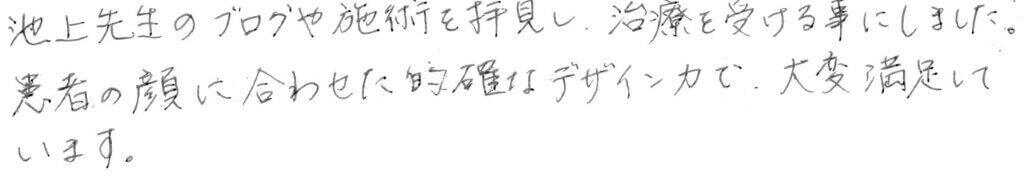 池上先生のブログや施術を拝見し、治療を受ける事にしました。
患者の顔に合わせた的確なデザイン力で、大変満足して
います。